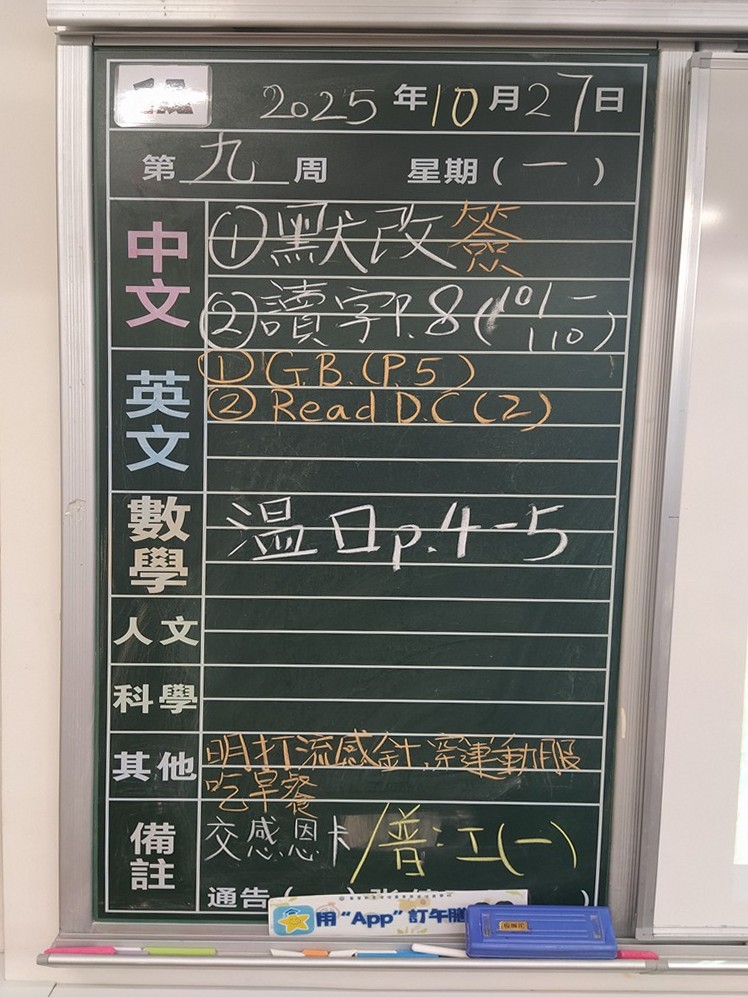 2025年10月27日
第九周 星期(一)
中文
①默改簽
②讀字P.8(101-110)
英文
①G.B.(P.5)
②Read D.C(2)
數學
溫口p.4-5
人文
科學
其他
明打流感針.穿運動服
吃早餐
備註
交感恩卡/普:工(一)
通告(
)
用"App"訂午膳